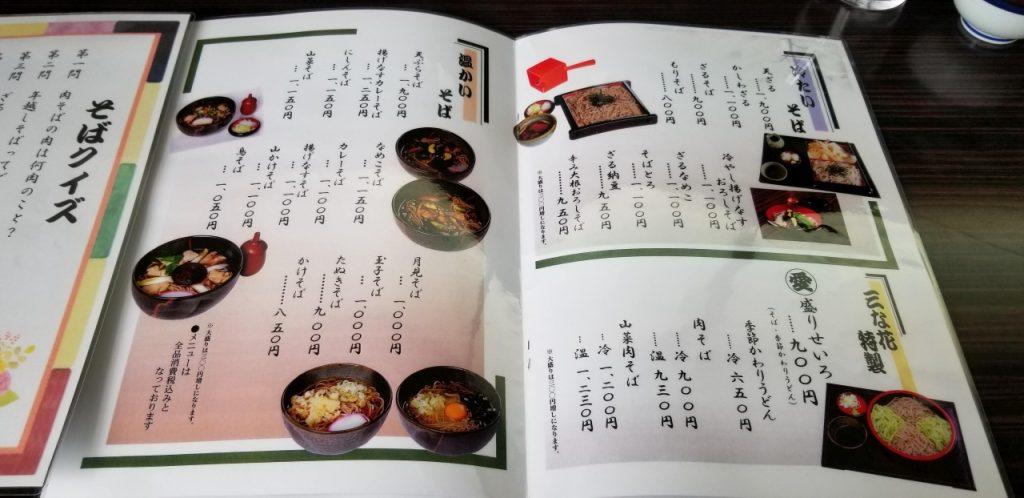 冷たい そば
天ざる
…一、八〇〇円
かしわざる
……一、一〇〇円
ざるそば
………九〇〇円
もりそば
………八〇〇円
冷やし揚げなす
おろしそば
……一、一〇〇円
ざるなめこ
……一、一〇〇円
そばとろ
……一、一〇〇円
ざる納豆
………九五〇円
辛み大根おろしそば
………九五〇円
※大盛りは三〇〇円増しになります。
三な花
特製
愛 盛りせいろ
……九〇〇円
(そば・季節かわりうどん)
季節かわりうどん
……冷 六五〇円
肉そば
……冷 九〇〇円
……温 九三〇円
山菜肉そば
……冷 一、二〇〇円
……温 一、二三〇円
※大盛りは三〇〇円増しになります。
温かい そば
天ぷらそば
… 一、九〇〇円
揚げなすカレーそば
… 一、二五〇円
にしんそば
… 一、一五〇円
山菜そば
… 一、一五〇円
なめこそば
… 一、一〇〇円
カレーそば
… 一、〇〇〇円
揚げなすそば
… 一、一〇〇円
山かけそば
… 一、一〇〇円
鳥そば
… 一、〇五〇円
月見そば
… 一、〇〇〇円
玉子そば
… 一、〇〇〇円
たぬきそば
………九〇〇円
かけそば
………八五〇円
※大盛りは三〇〇円増しになります。
●メニューは
全品消費税込みと
なっております
そばクイズ
第一問 肉そばの肉は何肉のこと？
第二問 年越しそばって
第三問 ざる